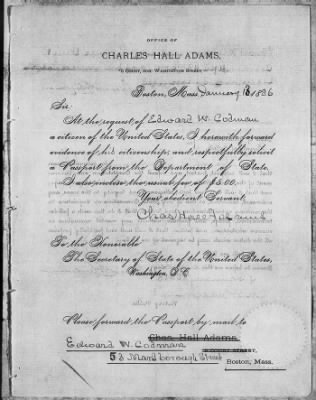 OFFICE OF
CHARLES HALL ADAMS,
Boston, Mass. January 1896
Sir
At the request of Edward W. Codman
a citizen of the United States, I herewith forward
evidence of his citizenship, and respectfully solicit
a Passport from the Department of State.
I also enclose the usual fee of $5.00.
Your obedient Servant,
Chas Hall Adams
To the Honorable
The Secretary of State of the United States,
Washington, D.C.
Please forward the Passport by mail to
Chas. Hall Adams
Edward W. Codman
53 Marlborough Street
Boston, Mass.